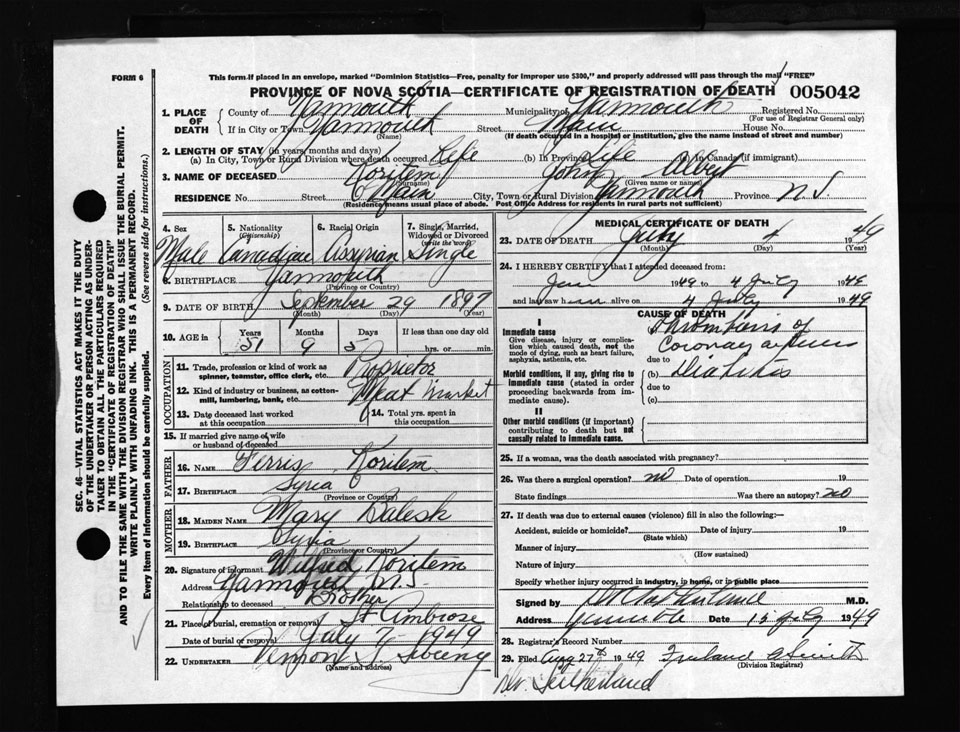 FORM 6
This form if placed in an envelope, marked "Dominion Statistics—Free, penalty for improper use $300," and properly addressed will pass through the mail "FREE"
PROVINCE OF NOVA SCOTIA—CERTIFICATE OF REGISTRATION OF DEATH 005042
1. PLACE OF DEATH
County of Yarmouth Municipality of Yarmouth Registered No.
(For use of Registrar General only)
If in City or Town Yarmouth Street Main House No.
(Name) (If death occurred in a hospital or institution, give the name instead of street and number)
2. LENGTH OF STAY (in years, months and days)
(a) In City, Town or Rural Division where death occurred Life (b) In Province Life (c) In Canada (if immigrant)
3. NAME OF DECEASED Koritem John Albert
(Surname) (Given name or names)
RESIDENCE No. Street Main City, Town or Rural Division Yarmouth Province N.S.
(Residence means usual place of abode. Post Office Address for residents in rural parts not sufficient)
4. Sex 5. Nationality (Citizenship) 6. Racial Origin 7. Single, Married, Widowed or Divorced (write the word)
Male Canadian Assyrian Single
8. BIRTHPLACE Yarmouth
(Province or Country)
9. DATE OF BIRTH September 29 1897
(Month) (Day) (Year)
10. AGE in Years Months Days If less than one day old
51 9 5 hrs. or min.
OCCUPATION
11. Trade, profession or kind of work as spinner, teamster, office clerk, etc. Proprietor
12. Kind of industry or business, as cotton-mill, lumbering, bank, etc. Meat Market
13. Date deceased last worked at this occupation
14. Total yrs. spent in this occupation
15. If married give name of wife or husband of deceased
FATHER
16. NAME Ferris Koritem
17. BIRTHPLACE Syria
(Province or Country)
MOTHER
18. MAIDEN NAME Mary Salesh
19. BIRTHPLACE Syria
(Province or Country)
20. Signature of informant Wilfred Koritem
Address Yarmouth N.S.
Relationship to deceased Brother
21. Place of burial, cremation or removal St Ambrose
Date of burial or removal July 7 1949
22. UNDERTAKER Vernon S. Sweeny
(Name and address)
MEDICAL CERTIFICATE OF DEATH
23. DATE OF DEATH July 4 1949
(Month) (Day) (Year)
24. I HEREBY CERTIFY that I attended deceased from:
Jan 1949 to 4 July 1949
and last saw him alive on 4 July 1949
CAUSE OF DEATH
I
Immediate cause
Give disease, injury or complication which caused death, not the mode of dying, such as heart failure, asphyxia, asthenia, etc.
Thrombosis of
Coronary arteries
due to
Morbid conditions, if any, giving rise to immediate cause (stated in order proceeding backwards from immediate cause).
(b) Diabetes
due to
(c)
II
Other morbid conditions (if important) contributing to death but not causally related to immediate cause.
25. If a woman, was the death associated with pregnancy?
26. Was there a surgical operation? no Date of operation 19
State findings Was there an autopsy? no
27. If death was due to external causes (violence) fill in also the following:
Accident, suicide or homicide? Date of injury 19
(State which)
Manner of injury
(How sustained)
Nature of injury
Specify whether injury occurred in industry, in home, or in public place
Signed by M.D.
Address Date 15 July 1949
28. Registrar's Record Number
29. Filed Aug 27th 1949 Freeland A Smith
(Division Registrar)
Dr. Sutherland
SEC. 46—VITAL STATISTICS ACT MAKES IT THE DUTY
OF THE UNDERTAKER OR PERSON ACTING AS UNDER-
TAKER TO OBTAIN ALL THE PARTICULARS REQUIRED
IN THE "CERTIFICATE OF REGISTRATION OF DEATH"
AND TO FILE THE SAME WITH THE DIVISION REGISTRAR WHO SHALL ISSUE THE BURIAL PERMIT.
WRITE PLAINLY WITH UNFADING INK. THIS IS A PERMANENT RECORD.
Every item of information should be carefully supplied. (See reverse side for instructions.)